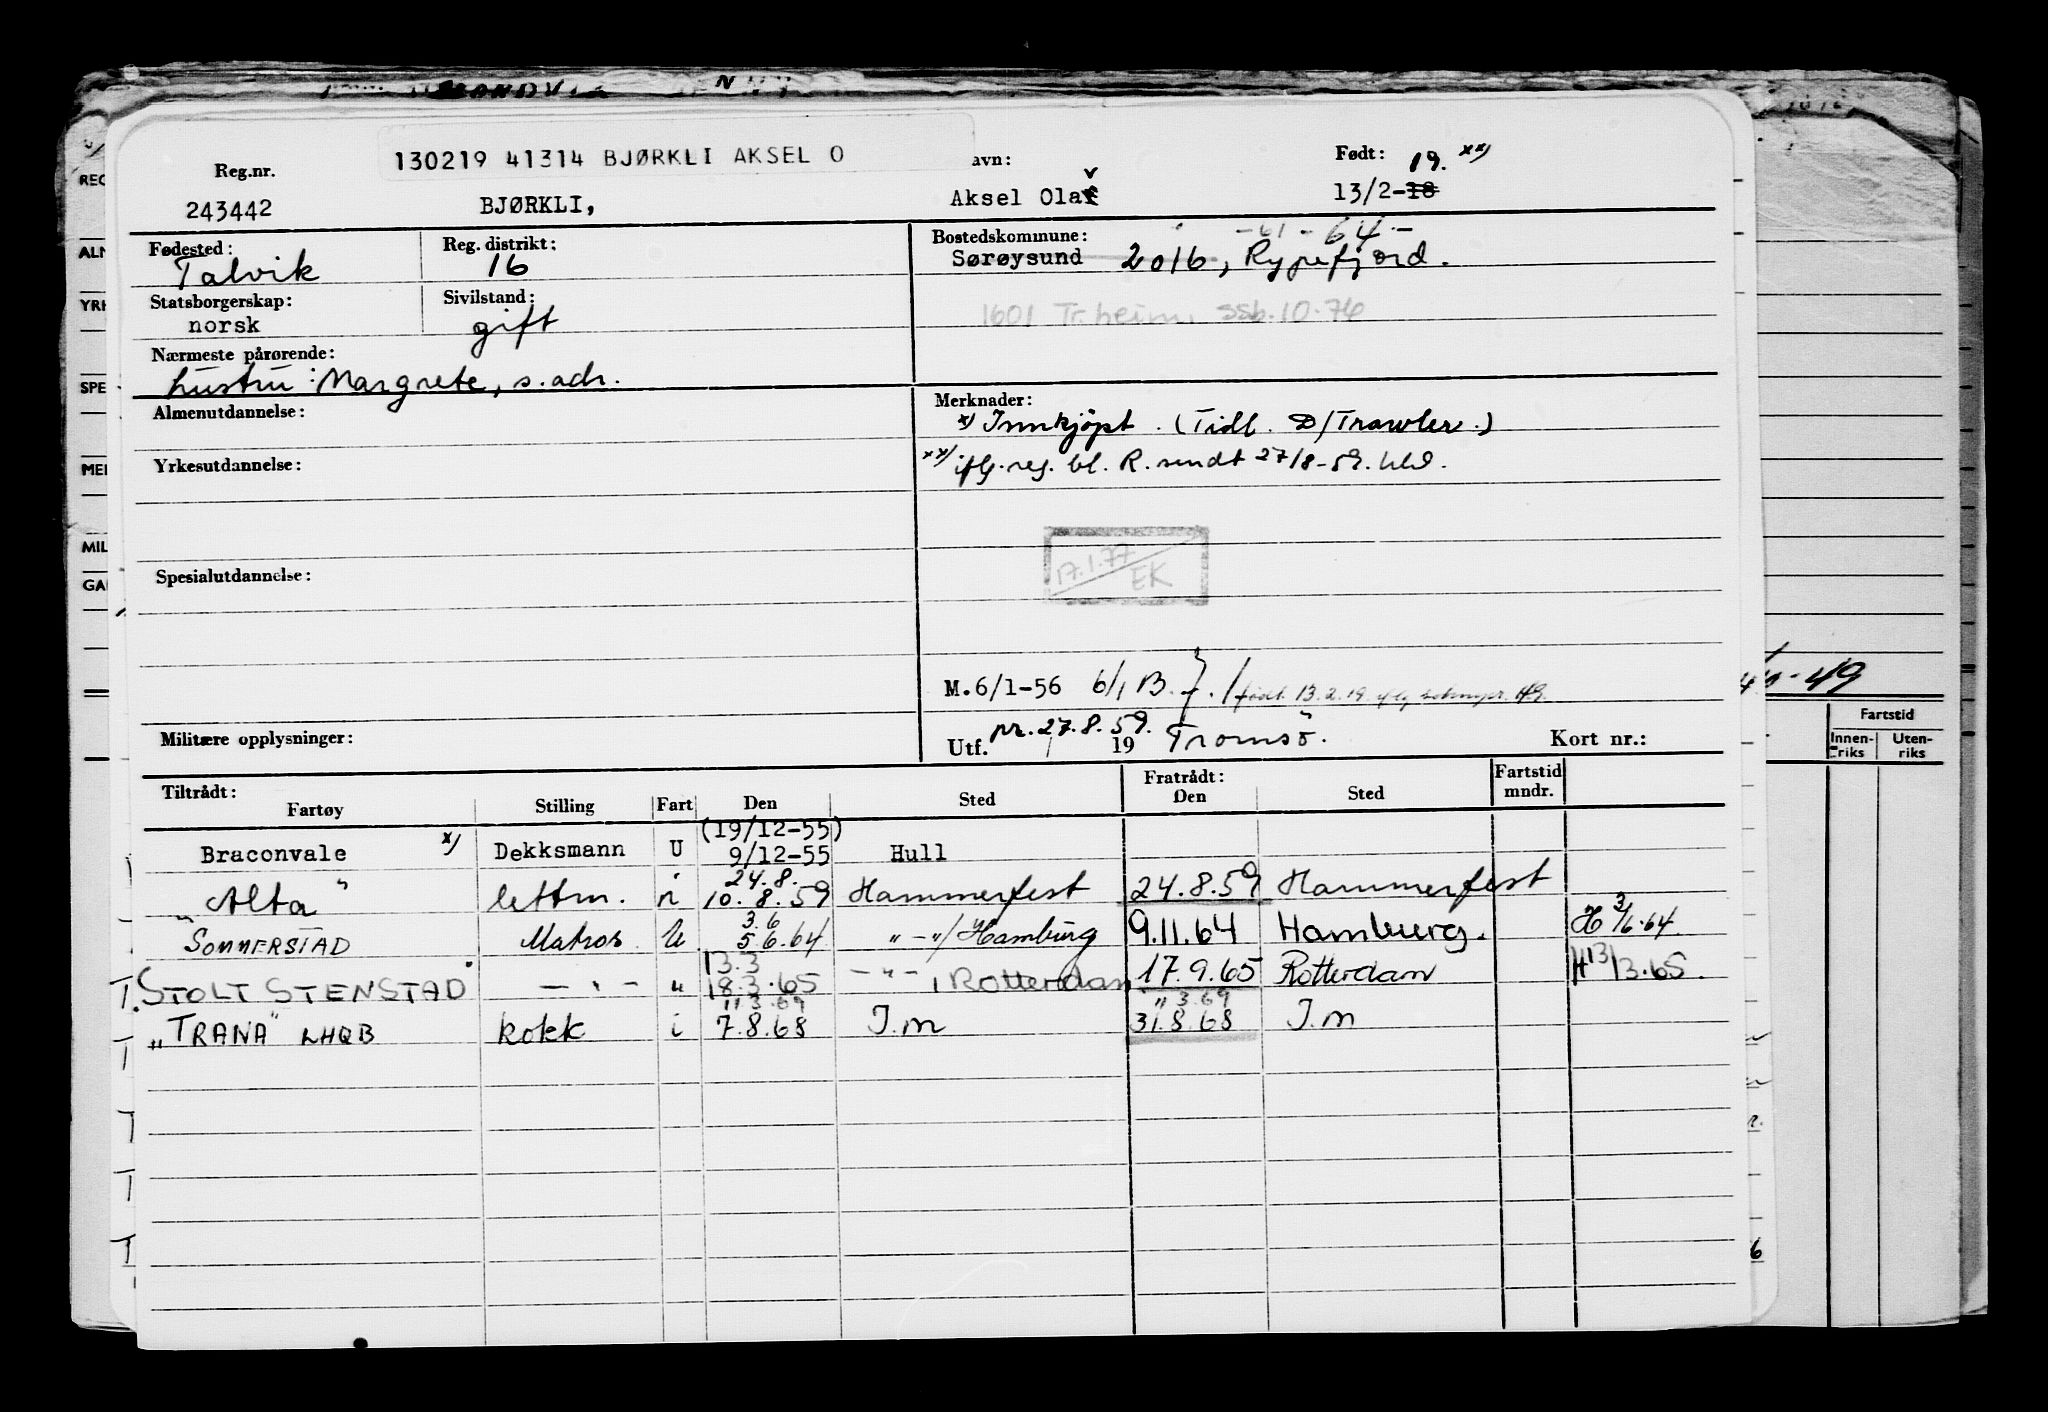 130219 41314 BJØRKLI AKSEL O
Reg.nr.
avn:
Født: 19. xx)
243442 BJØRKLI, Aksel Olav 13/2-18
Fødested: Talvik
Reg. distrikt: 16
Bostedskommune: -61-64.-
Sørøysund 2016, Rypefjord.
Statsborgerskap: norsk
Sivilstand: gift
1601 Tr.heim, ssb.10.76
Nærmeste pårørende:
hustru: Margrete, s.adr.
Almenutdannelse:
Merknader:
x) Innkjøpt. (Tidl. D/Trawler.)
Yrkesutdannelse:
xx) iflg. reg. bl. R. sendt 27/8-59.
17.1.77
EK
Spesialutdannelse:
M.6/1-56 6/1 B. født 13.2.19
Militære opplysninger:
Utf. pr. 27.8.59. 19 Tromsö.
Kort nr.:
Tiltrådt:
Fratrådt:
Fartøy Stilling Fart Den Sted Den Sted Fartstid mndr.
(19/12-55)
Braconvale x) Dekksmann U 9/12-55 Hull
24.8.
"Alta" lettm. i 10.8.59 Hammerfest 24.8.59 Hammerfest
3.6
"SOMMERSTAD Matros U 5.6.64 "-"/Hamburg 9.11.64 Hamburg. H 3/6.64.
13.3
T.STOLT STENSTAD" — " — " 18.3.65 — " —, Rotterdam 17.9.65 Rotterdam H 13/3.65.
11.3.69 " 3.69
"TRANA" LHQB kokk i 7.8.68 I.m 31.8.68 I.m
REG
ALM
YRK
SPE
MIL
GA
-49
Fartstid
Innen-riks
Uten-riks